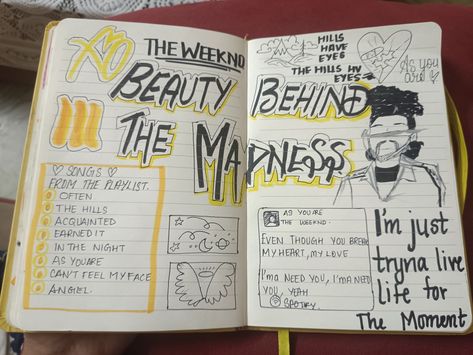 XO
THE WEEKND
BEAUTY BEHIND
THE MADNESS
♡ SONGS ♡
FROM THE PLAYLIST.
OFTEN
THE HILLS
ACQUAINTED
EARNED IT
IN THE NIGHT
AS YOU ARE
CAN'T FEEL MY FACE
ANGEL.
HILLS
HAVE
EYES
THE HILLS HV
EYES
As you
are ♡
AS YOU ARE
THE WEEKND.
EVEN THOUGH YOU BREAK
MY HEART, MY LOVE
I'MA NEED YOU, I'MA NEED
YOU, YEAH
SPOTIFY.
I'm just
tryna live
life for
The Moment